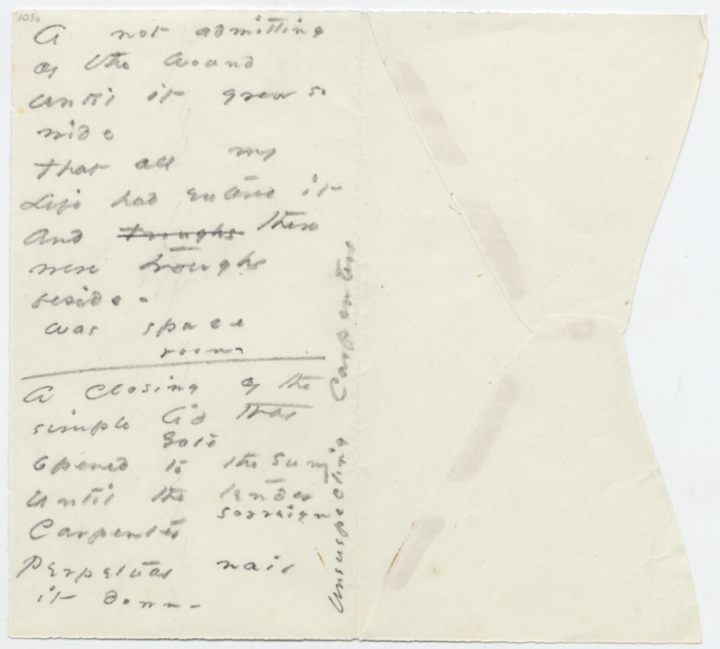 105a
A not admitting
of the wound
Until it grew so
wide
That all my
Life had entered it
And troughs there
were troughs
beside -
was space
room
A closing of the
simple lid that
Gate
opened to the sun
Until the tender
sovreign
Carpenter
Perpetual nail
it down -
Unsuspecting Carpenters